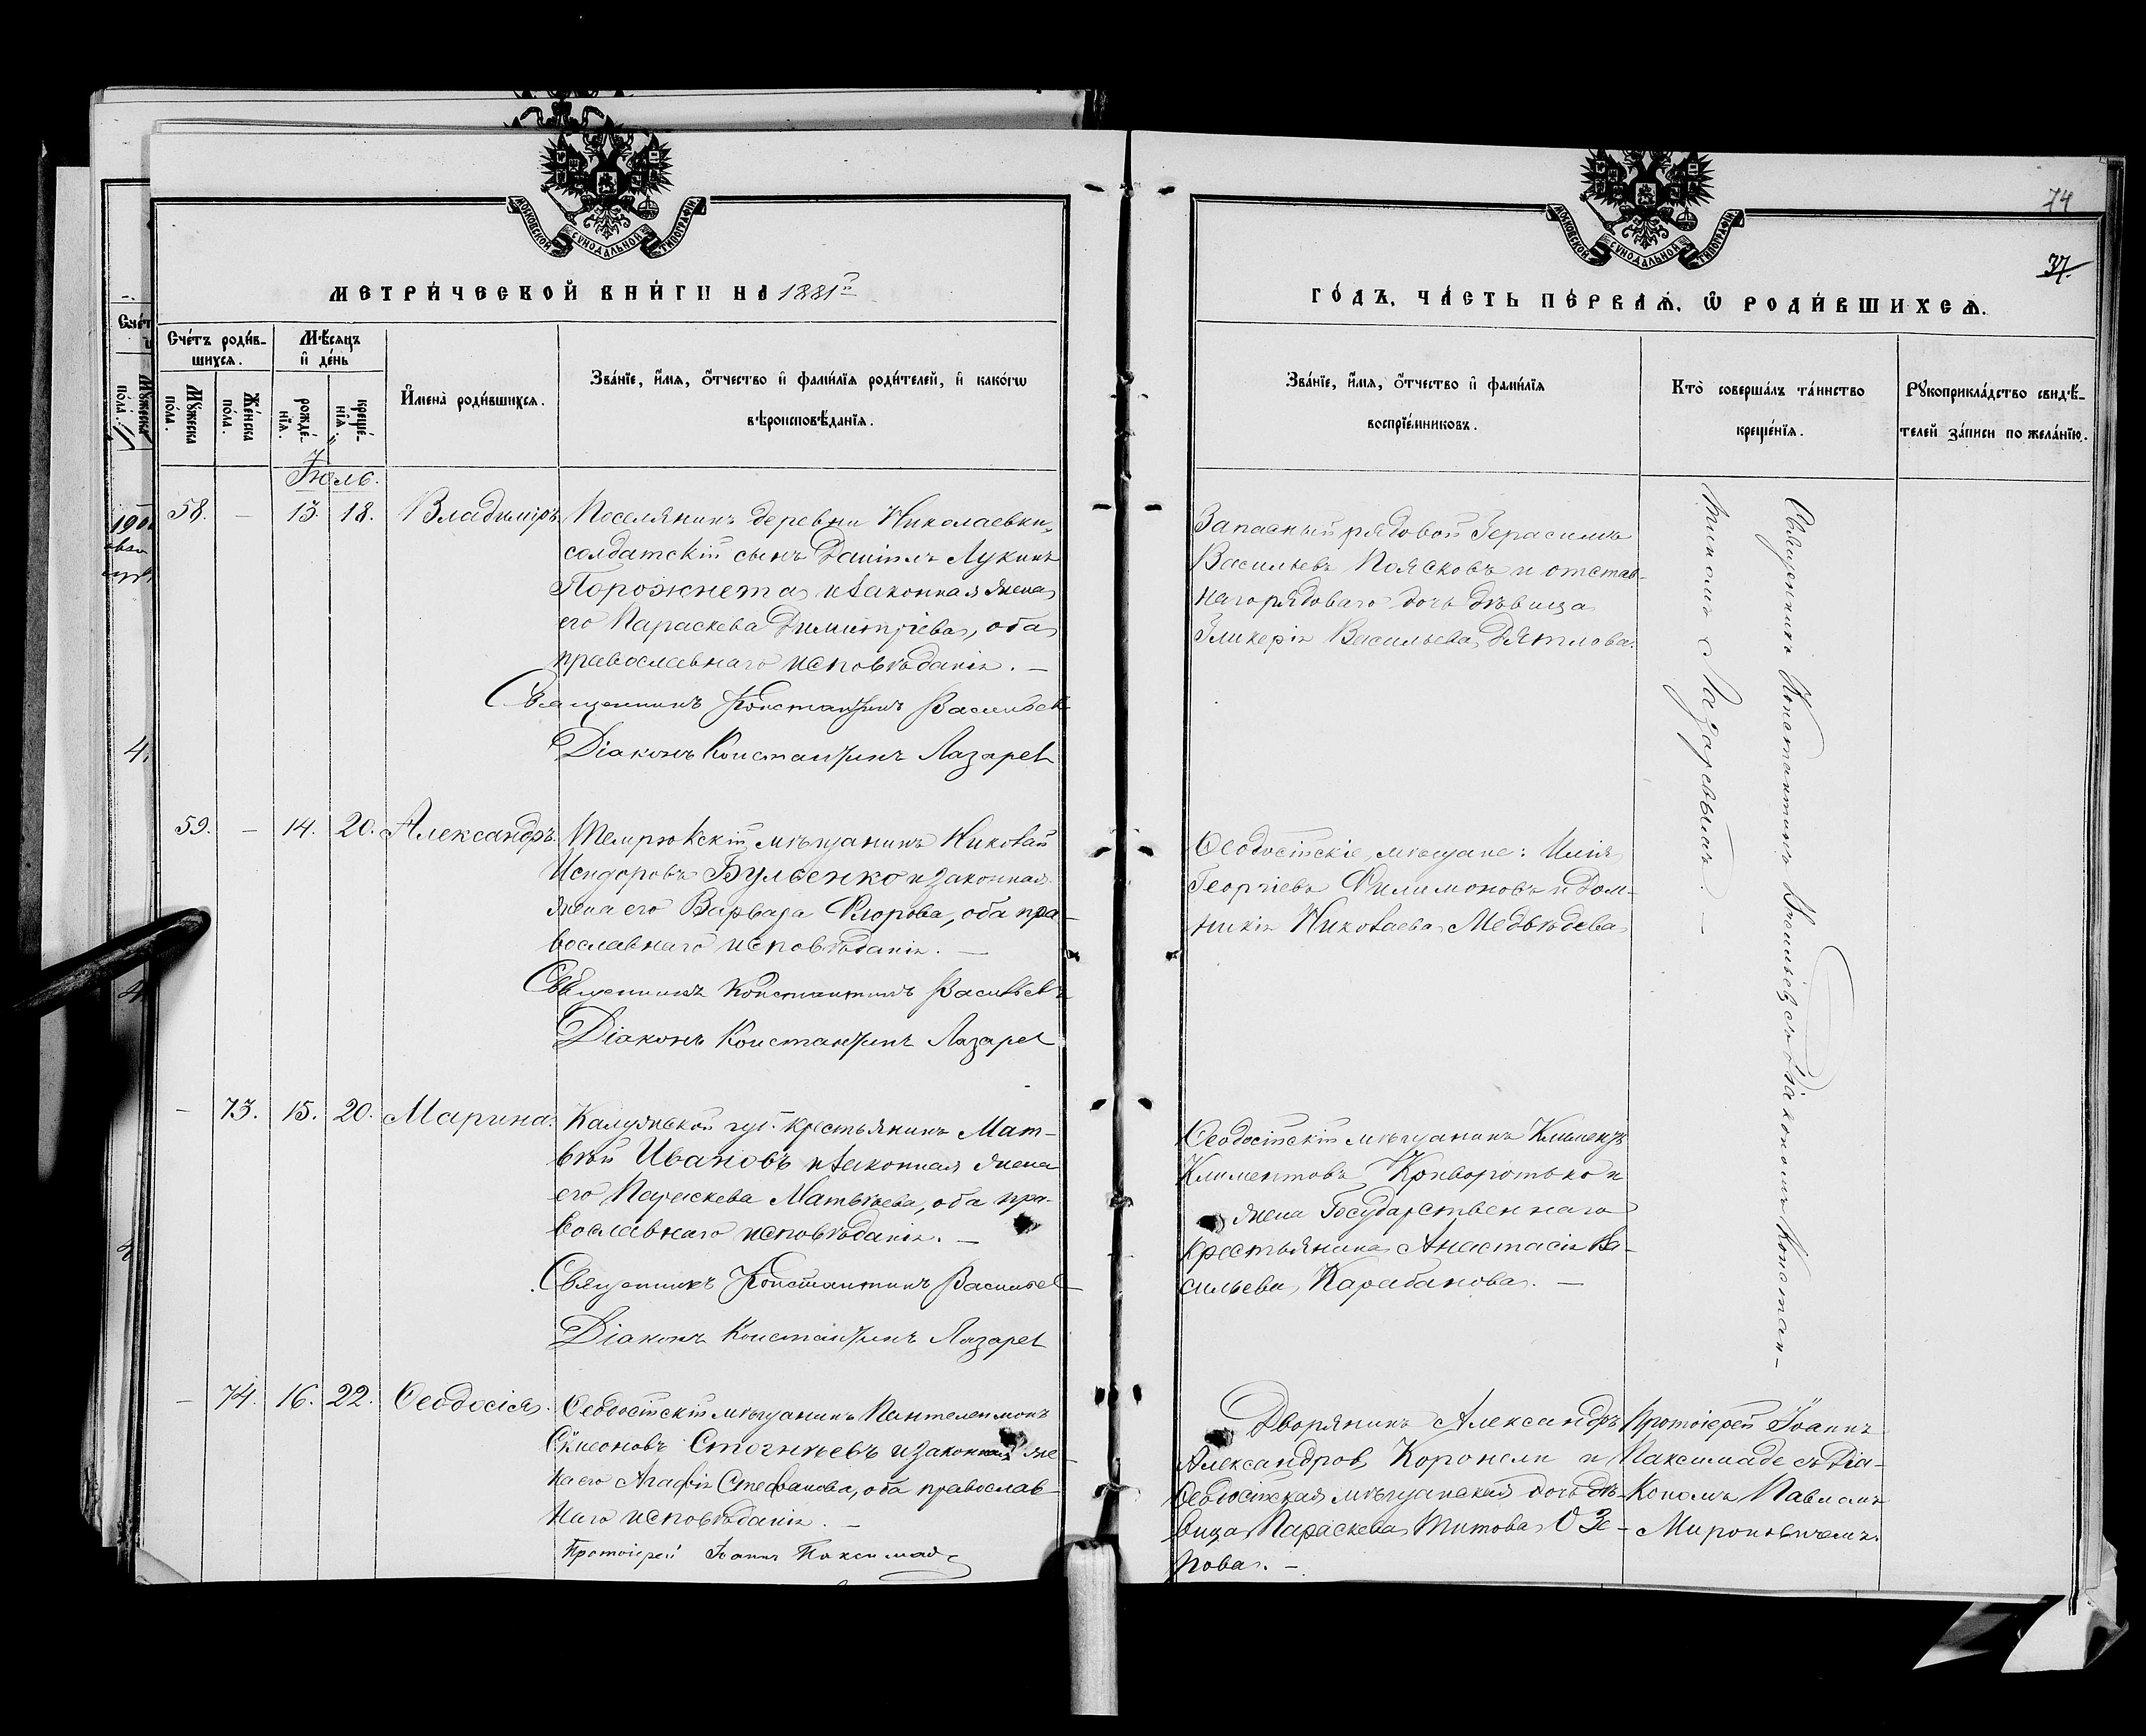 МОСКОВСКОЙ СѴНОДАЛЬНОЙ ТИПОГРАФІИ
МОСКОВСКОЙ СѴНОДАЛЬНОЙ ТИПОГРАФІИ
74
37.
МЕТРИ́ЧЕСКОЙ КНИ́ГИ НА 1881й
ГО́ДЪ, ЧА́СТЬ ПЕ́РВАѦ, Ѡ РОДИ́ВШИХСѦ.
Счетъ родив-
шихся.
Мѣсяцъ
и день
Мужеска
пола.
Женска
пола.
рожде-
нія.
креще-
нія.
Имена родившихся.
Званіе, имя, отчество и фамилія родителей, и какогѡ
вѣроисповѣданія.
Званіе, имя, отчество и фамилія
воспріемниковъ.
Кто совершалъ таинство
крещенія.
Рукоприкладство свидѣ-
телей записи по желанію.
Іюль.
58. — 13. 18. Владиміръ
Поселянинъ деревни Николаевки,
солдатскій сынъ Даніилъ Лукинъ
Порожнета и законная жена
его Параскева Димитріева, оба
православнаго исповѣданія. —
Священникъ Константинъ Васильев
Діаконъ Константинъ Лазарев
Запасный рядовой Герасимъ
Васильевъ Поясковъ и отстав-
наго рядоваго дочь дѣвица
Гликерія Васильева Дятлова.
Священникъ Константинъ Васильевъ съ Діакономъ Констан-
тиномъ Лазаревымъ. —
59. — 14. 20. Александръ.
Темрюкскій мѣщанинъ Николай
Исидоровъ Бульенко и законная
жена его Варвара Флорова, оба пра-
вославнаго исповѣданія. —
Священникъ Константинъ Васильевъ
Діаконъ Константинъ Лазарев
Ѳеодосійскіе мѣщане: Илія
Георгіевъ Филимоновъ и Дом-
никія Николаева Медвѣдева
— 73. 15. 20. Марина.
Калужской губ. крестьянинъ Мат-
вѣй Ивановъ и законная жена
его Параскева Матвѣева, оба пра-
вославнаго исповѣданія. —
Священникъ Константинъ Васильев
Діаконъ Константинъ Лазарев
Ѳеодосійскій мѣщанинъ Климентъ
Климентовъ Криворотько и
жена Государственнаго
крестьянина Анастасія Ва-
сильева Карабанова. —
— 74. 16. 22. Ѳеодосія.
Ѳеодосійскій мѣщанинъ Пантелеимонъ
Сѵмеоновъ Стогнѣевъ и законная же-
на его Агафія Стефанова, оба православ-
наго исповѣданія. —
Протоіерей Іоаннъ Паксимаде
Дворянинъ Александръ
Александров Коронели и
Ѳеодосійская мѣщанская дочь дѣ-
вица Параскева Титова Озе-
рова. —
Протоіерей Іоаннъ
Паксимаде съ Діа-
кономъ Павломъ
Мироновичемъ.